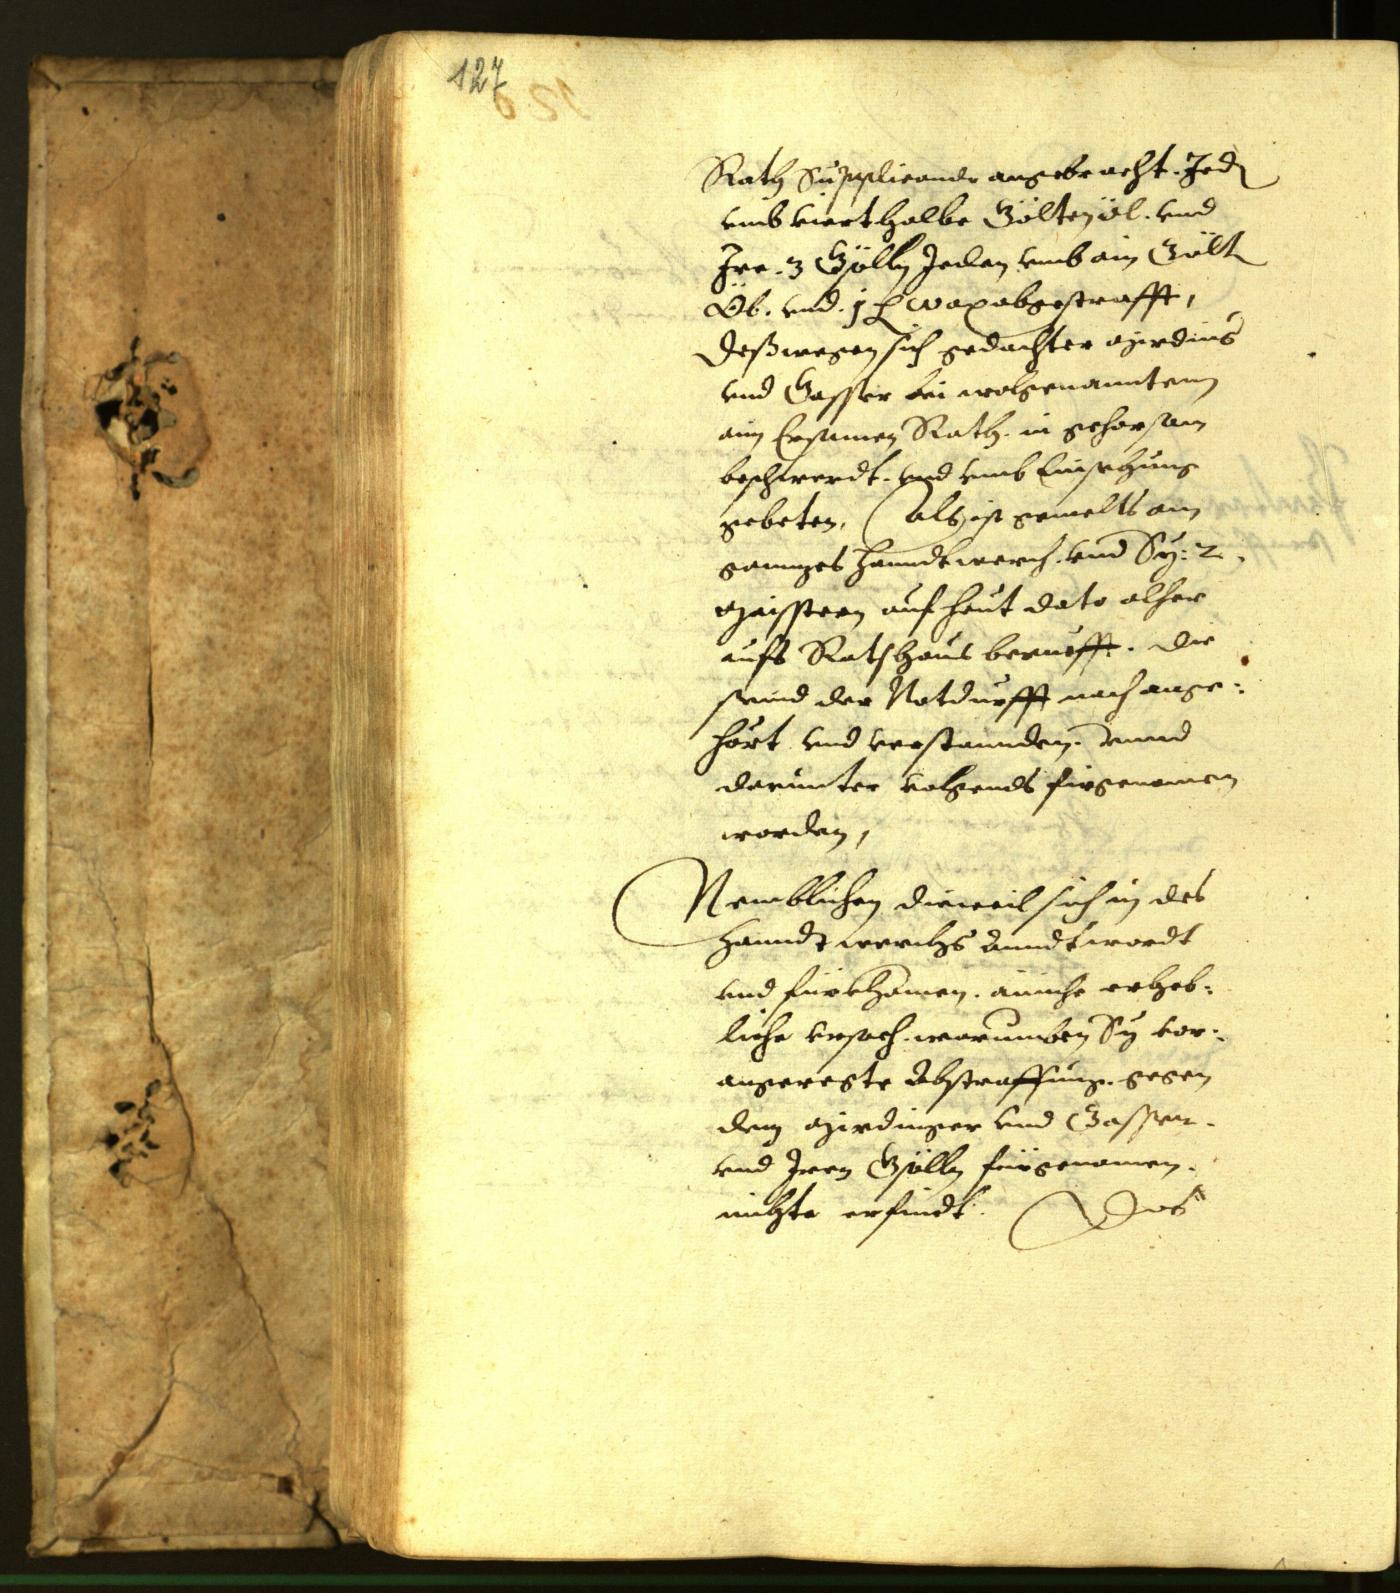 127
Rath Supplicando angebracht. Jed
umb vierthalbe Gölten öl. und
Jre. 3 Gsölln Jeden umb ain Gölt
Öl. und. j ℔ wax abgestrafft,
Deßwegen sich gedachter
und Gasser bei wolgenanntem
aim Ersamen Rath. in gehorsam
beschwerdt. und umb Einsehung
gebeten, als ist gemelts ain
gannzes Hanndtwerch. und Sy: 2.
Maisstern auf heut dato alher
aufs Rathhaus beruefft. Die
seind der Notdurfft nach ange:
hört und verstannden. unnd
darunter volgends fürgenomen
worden,
Nemblichen dieweil sich in des
Hanndtwerchs Anndtwordt
und fürkhomen. ainiche erheb:
liche ursach. warumben Sy vor:
angeregte Abstraffung. gegen
dem Mirdinger und Gasser.
und Jren Gsölln fürgenomen.
nichts erfindt. Das